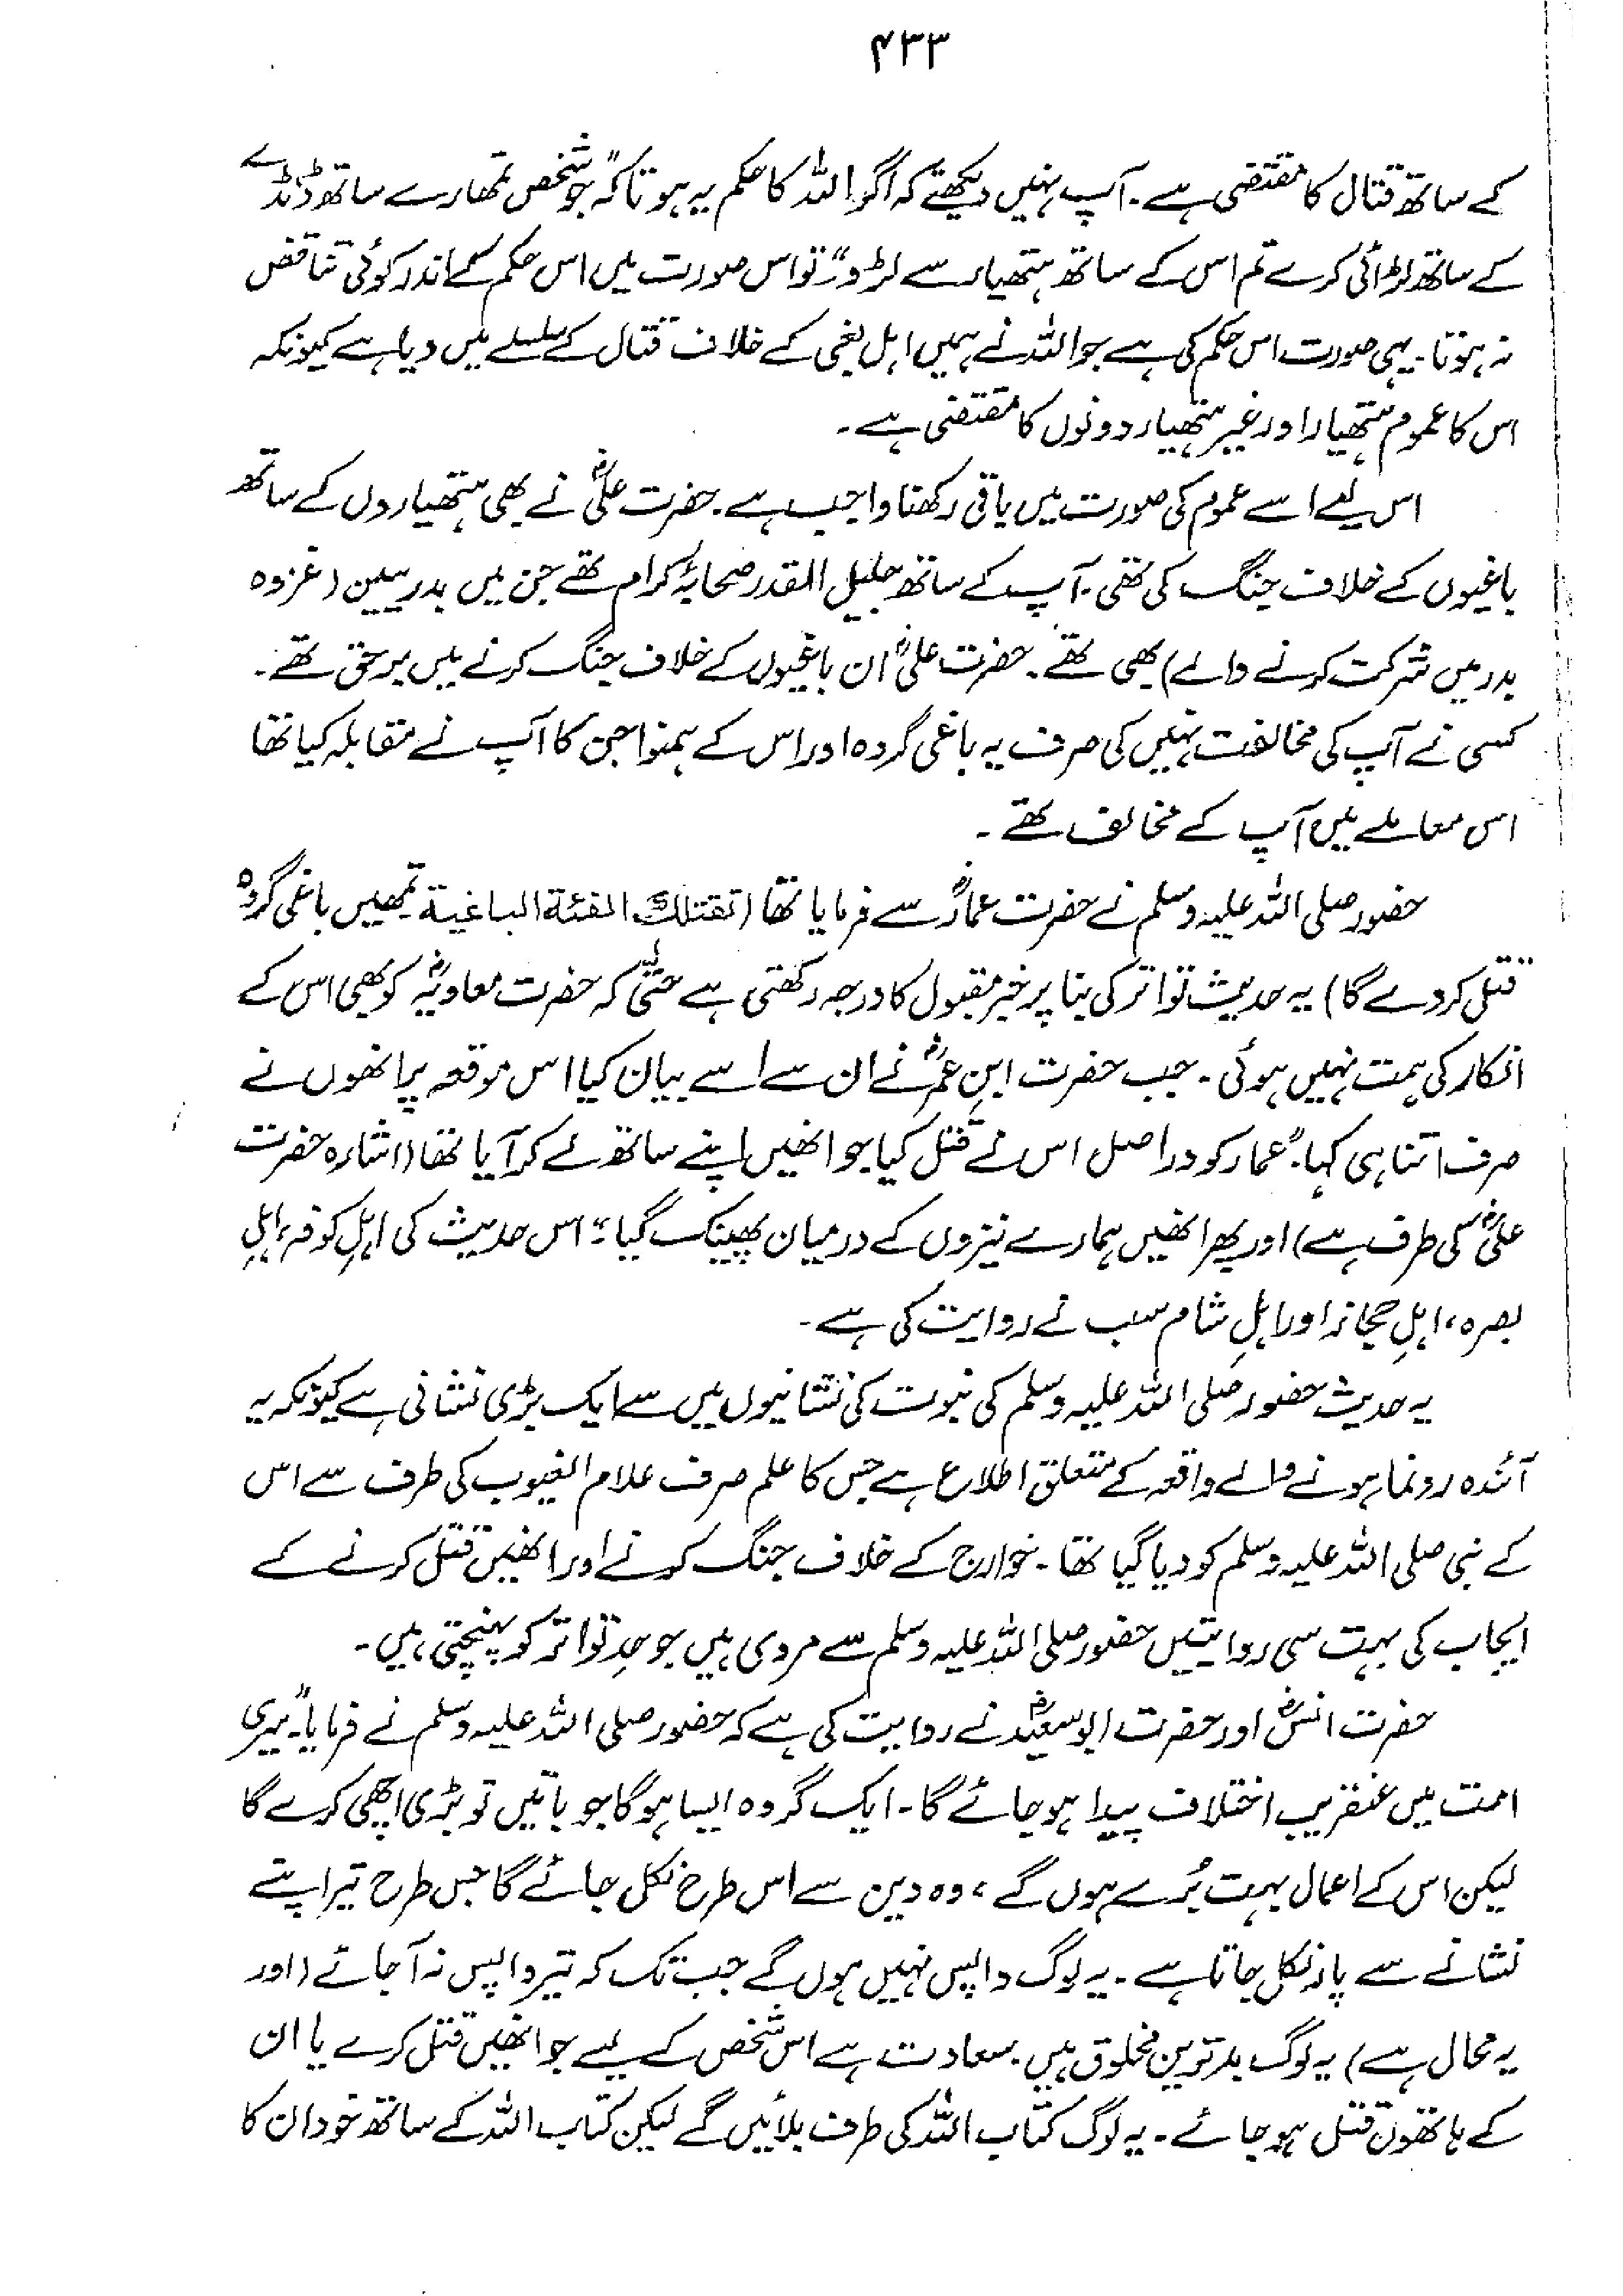 ۴۳۳
کے ساتھ قتال کا مقتضی ہے۔ آپ نہیں دیکھتے کہ اگر اللہ کا حکم یہ ہوتا کہ "جو شخص تمھارے ساتھ ڈنڈے
کے ساتھ لڑائی کرے تم اس کے ساتھ ہتھیار سے لڑو" تو اس صورت میں اس حکم کے اندر کوئی تناقض
نہ ہوتا۔ یہی صورت اس حکم کی ہے جو اللہ نے ہمیں اہل بغی کے خلاف قتال کے سلسلے میں دیا ہے کیونکہ
اس کا عموم ہتھیار اور غیر ہتھیار دونوں کا مقتضی ہے۔
اس لیے اسے عموم کی صورت میں باقی رکھنا واجب ہے۔ حضرت علیؓ نے بھی ہتھیاروں کے ساتھ
باغیوں کے خلاف جنگ کی تھی۔ آپ کے ساتھ جلیل القدر صحابۂ کرام تھے جن میں بدریین (غزوہ
بدر میں شرکت کرنے والے) بھی تھے۔ حضرت علیؓ ان باغیوں کے خلاف جنگ کرنے میں برحق تھے۔
کسی نے آپ کی مخالفت نہیں کی صرف یہ باغی گروہ اور اس کے ہمنوا جن کا آپ نے مقابلہ کیا تھا
اس معاملے میں آپ کے مخالف تھے۔
حضور صلی اللہ علیہ وسلم نے حضرت عمارؓ سے فرمایا تھا (تقتلك الفئة الباغية تمھیں باغی گروہ
قتل کر دے گا) یہ حدیث تواتر کی بنا پر خبر مقبول کا درجہ رکھتی ہے حتیٰ کہ حضرت معاویہؓ کو بھی اس کے
انکار کی ہمت نہیں ہوئی۔ جب حضرت ابنِ عمرؓ نے ان سے اسے بیان کیا اس موقعہ پر انھوں نے
صرف اتنا ہی کہا۔ "عمار کو دراصل اس نے قتل کیا جو انھیں اپنے ساتھ لے کر آیا تھا (اشارہ حضرت
علیؓ کی طرف ہے) اور پھر انھیں ہمارے نیزوں کے درمیان پھینک گیا۔" اس حدیث کی اہلِ کوفہ، اہلِ
بصرہ، اہلِ حجاز اور اہلِ شام سب نے روایت کی ہے۔
یہ حدیث حضور صلی اللہ علیہ وسلم کی نبوت کی نشانیوں میں سے ایک بڑی نشانی ہے کیونکہ یہ
آئندہ رونما ہونے والے واقعہ کے متعلق اطلاع ہے جس کا علم صرف علام الغیوب کی طرف سے اس
کے نبی صلی اللہ علیہ وسلم کو دیا گیا تھا۔ خوارج کے خلاف جنگ کرنے اور انھیں قتل کرنے کے
ایجاب کی بہت سی روایتیں حضور صلی اللہ علیہ وسلم سے مروی ہیں جو حدِ تواتر کو پہنچتی ہیں۔
حضرت انسؓ اور حضرت ابو سعیدؓ نے روایت کی ہے کہ حضور صلی اللہ علیہ وسلم نے فرمایا۔ "میری
امت میں عنقریب اختلاف پیدا ہو جائے گا۔ ایک گروہ ایسا ہوگا جو باتیں تو بڑی اچھی کرے گا
لیکن اس کے اعمال بہت بُرے ہوں گے، وہ دین سے اس طرح نکل جائے گا جس طرح تیر اپنے
نشانے سے پار نکل جاتا ہے۔ یہ لوگ واپس نہیں ہوں گے جب تک کہ تیر واپس نہ آ جائے (اور
یہ محال ہے) یہ لوگ بدترین مخلوق ہیں۔ سعادت ہے اس شخص کے لیے جو انھیں قتل کرے یا ان
کے ہاتھوں قتل ہو جائے۔ یہ لوگ کتاب اللہ کی طرف بلائیں گے لیکن کتاب اللہ کے ساتھ خود ان کا